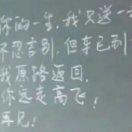 你的一生，我只送一
不忍言别，但车已到
我原路返回，
你远走高飞！
再见！